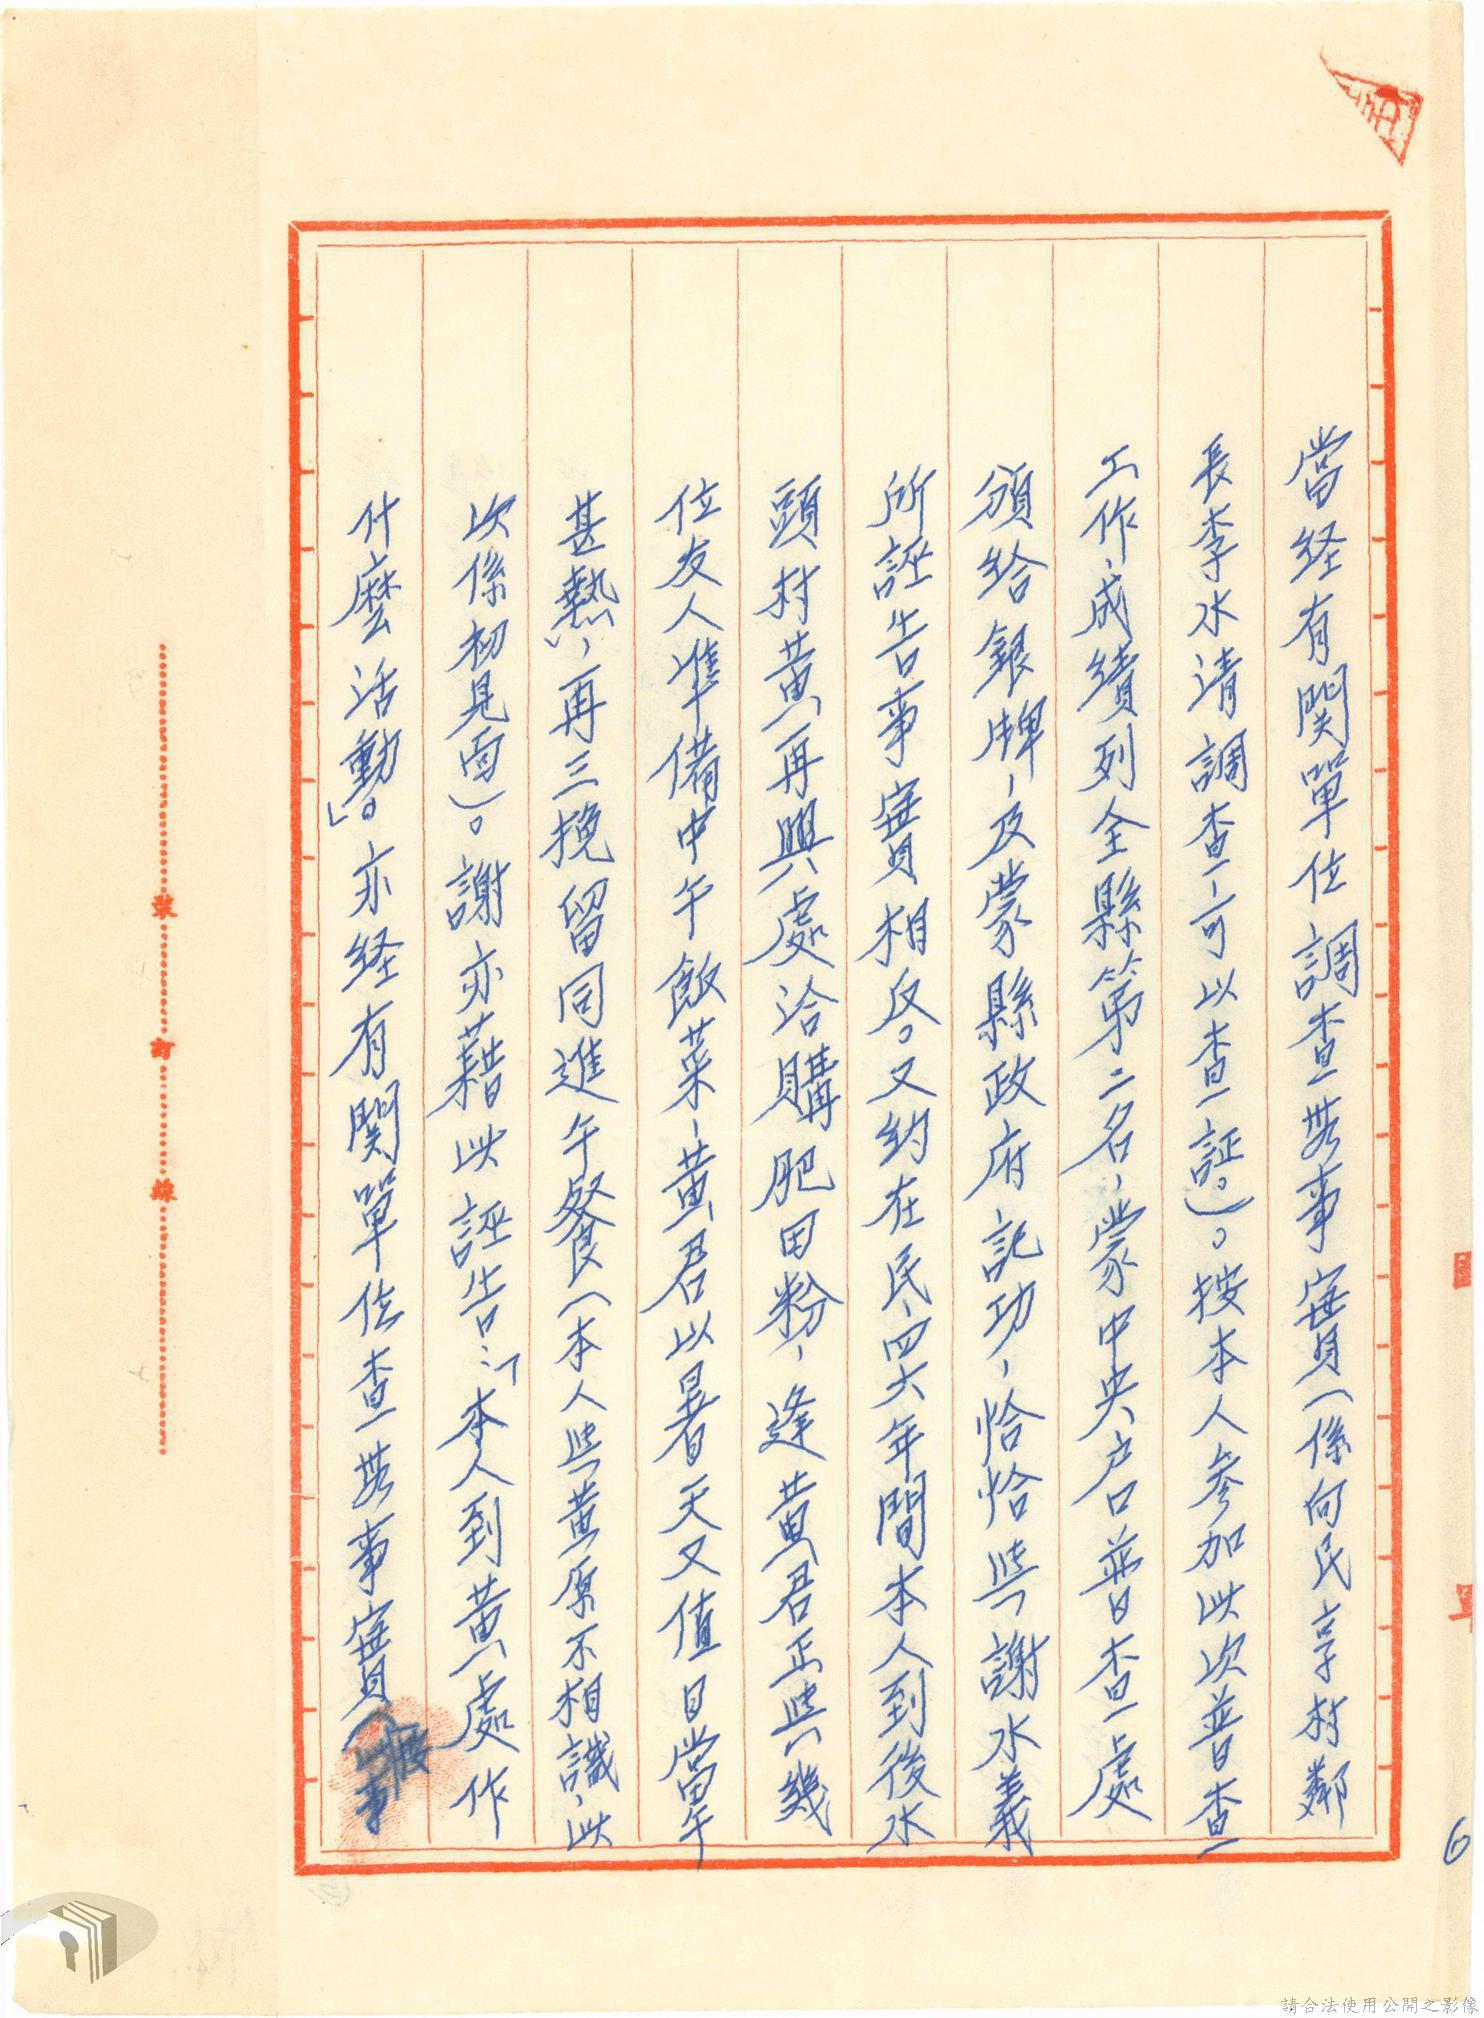 當経有関單位調查無事實（係向民享村鄰
長李水清調查，可以查証。）。按本人參加此次普查
工作，成績列全縣第二名，蒙中央户口普查處
頒給銀牌，及蒙縣政府記功，恰恰與謝水義
所誣告事實相反。又約在民、四六年間本人到後水
頭村黃再興處洽購肥田粉，逢黃君正與幾
位友人準備中午飯菜，黃君以暑天又值日當午
甚熱，再三挽留同進午餐（本人與黃原不相識，此
次係初見面）。謝亦藉此誣告：「本人到黃處作
什麼活動」。亦経有関單位查無事實
裝 訂 線
6
請合法使用公開之影像